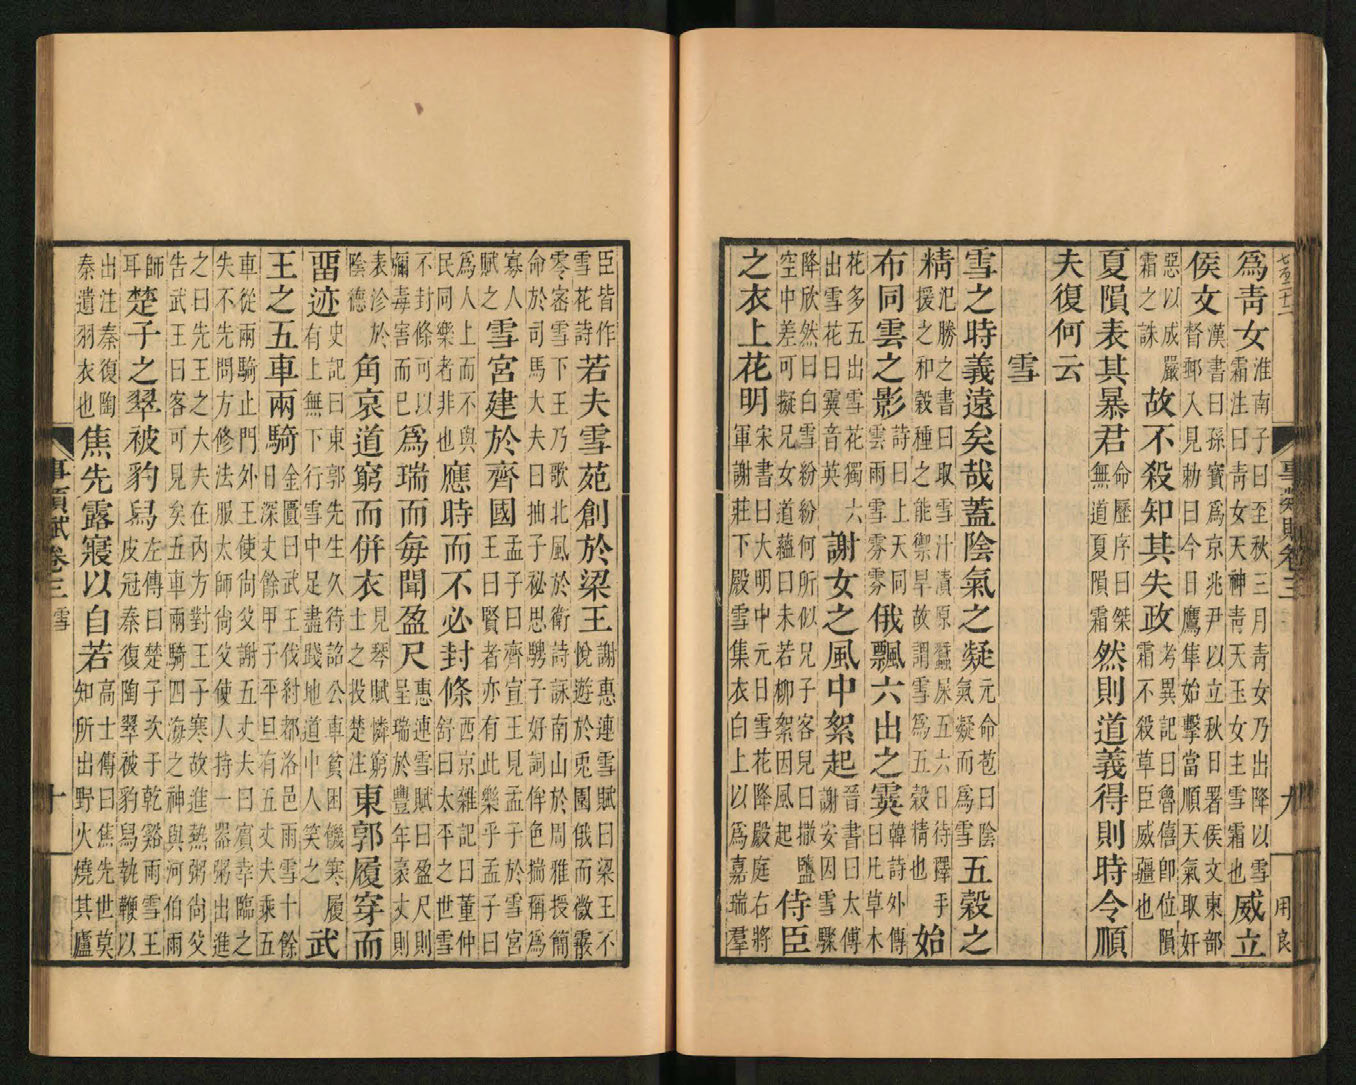 爲青女淮南子曰至秋三月青女乃出降以雪霜注曰青女天神靑天玉女主雪霜也威立
侯文漢書曰孫寶爲京兆尹以立秋日署侯文東部督郵入見勅曰今日鷹隼始擊當順天氣取奸
惡以成嚴霜之誅故不殺知其失政考異記曰魯僖卽位隕霜不殺草臣威疆也
夏隕表其暴君命歷序曰桀無道夏隕霜然則道義得則時令順
夫復何云
雪
雪之時義遠矣哉蓋陰氣之凝元命苞曰陰氣凝而爲雪五穀之
精氾勝之書曰取雪汁漬原蠶屎五六日待釋手援之和穀種之能禦旱故謂雪爲五穀精也始
布同雲之影詩曰上天同雲雨雪雰雰俄飄六出之霙韓詩外傳曰凡草木
花多五出雪花獨六出雪花曰霙音英謝女之風中絮起晉書曰太傅謝安因雪驟
降欣然曰白雪紛紛何所似兄子客兒曰撒鹽空中差可擬兄女道蘊曰未若柳絮因風起侍臣
之衣上花明宋書曰大明中元日雪花降殿庭右將軍謝莊下殿雪集衣白上以爲嘉瑞羣
事類賦卷三
九
用良
臣皆作雪花詩若夫雪苑創於梁王謝惠連雪賦曰梁王不悅遊於兎園俄而微霰
零密雪下王乃歌北風於衛詩詠南山於周雅授簡命於司馬大夫曰抽子秘思騁子好詞侔色揣稱爲
寡人賦之雪宮建於齊國孟子曰齊宣王見孟子於雪宮王曰賢者亦有此樂乎孟子曰
爲人上而不與民同樂者非也應時而不必封條西京雜記曰董仲舒曰太平之世雪
不封條可以彌毒害而已爲瑞而每聞盈尺惠連雪賦曰盈尺則呈瑞於豐年袤丈則
表沴於陰德角哀道窮而併衣見琴賦憐窮士之投楚注東郭履穿而
畱迹史記曰東郭先生久待詔公車貧困饑寒履有上無下行雪中足盡踐地道中人笑之武
王之五車兩騎金匱曰武王伐紂都洛邑雨雪十餘日深丈餘甲子平旦有五丈夫乘五
車從兩騎止門外王使尙父謝五丈夫曰賔幸臨之失不先問方修法服太師尙父使人持一器粥出進
之曰先王之大夫在內方對王子寒故進熱粥尙父告武王曰客可見矣五車兩騎四海之神與河伯雨
師耳楚子之翠被豹舄左傳曰楚子次于乾谿雨雪王皮冠秦復陶翠被豹舄執鞭以
出注秦復陶秦遺羽衣也焦先露寢以自若高士傳曰焦先世莫知所出野火燒其廬
事類賦卷三 雪
十